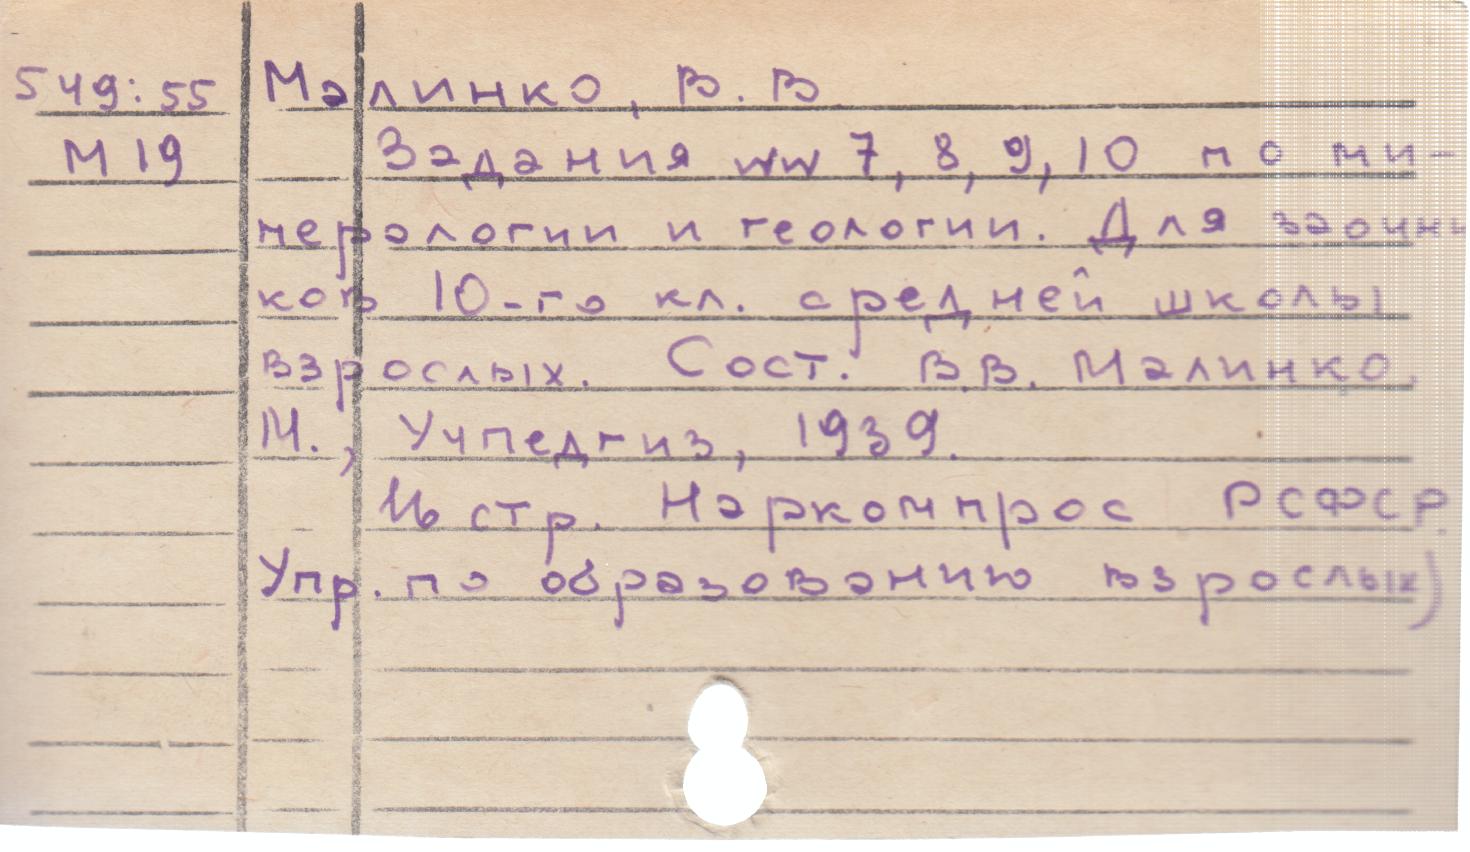 549:55 Малинко, В. В.
М19 Задания №№ 7, 8, 9, 10 по ми-
нералогии и геологии. Для заочни
ков 10-го кл. средней школы
взрослых. Сост. В.В. Малинко.
М., Учпедгиз, 1939.
16 стр. Наркомпрос РСФСР.
Упр. по образованию взрослых)